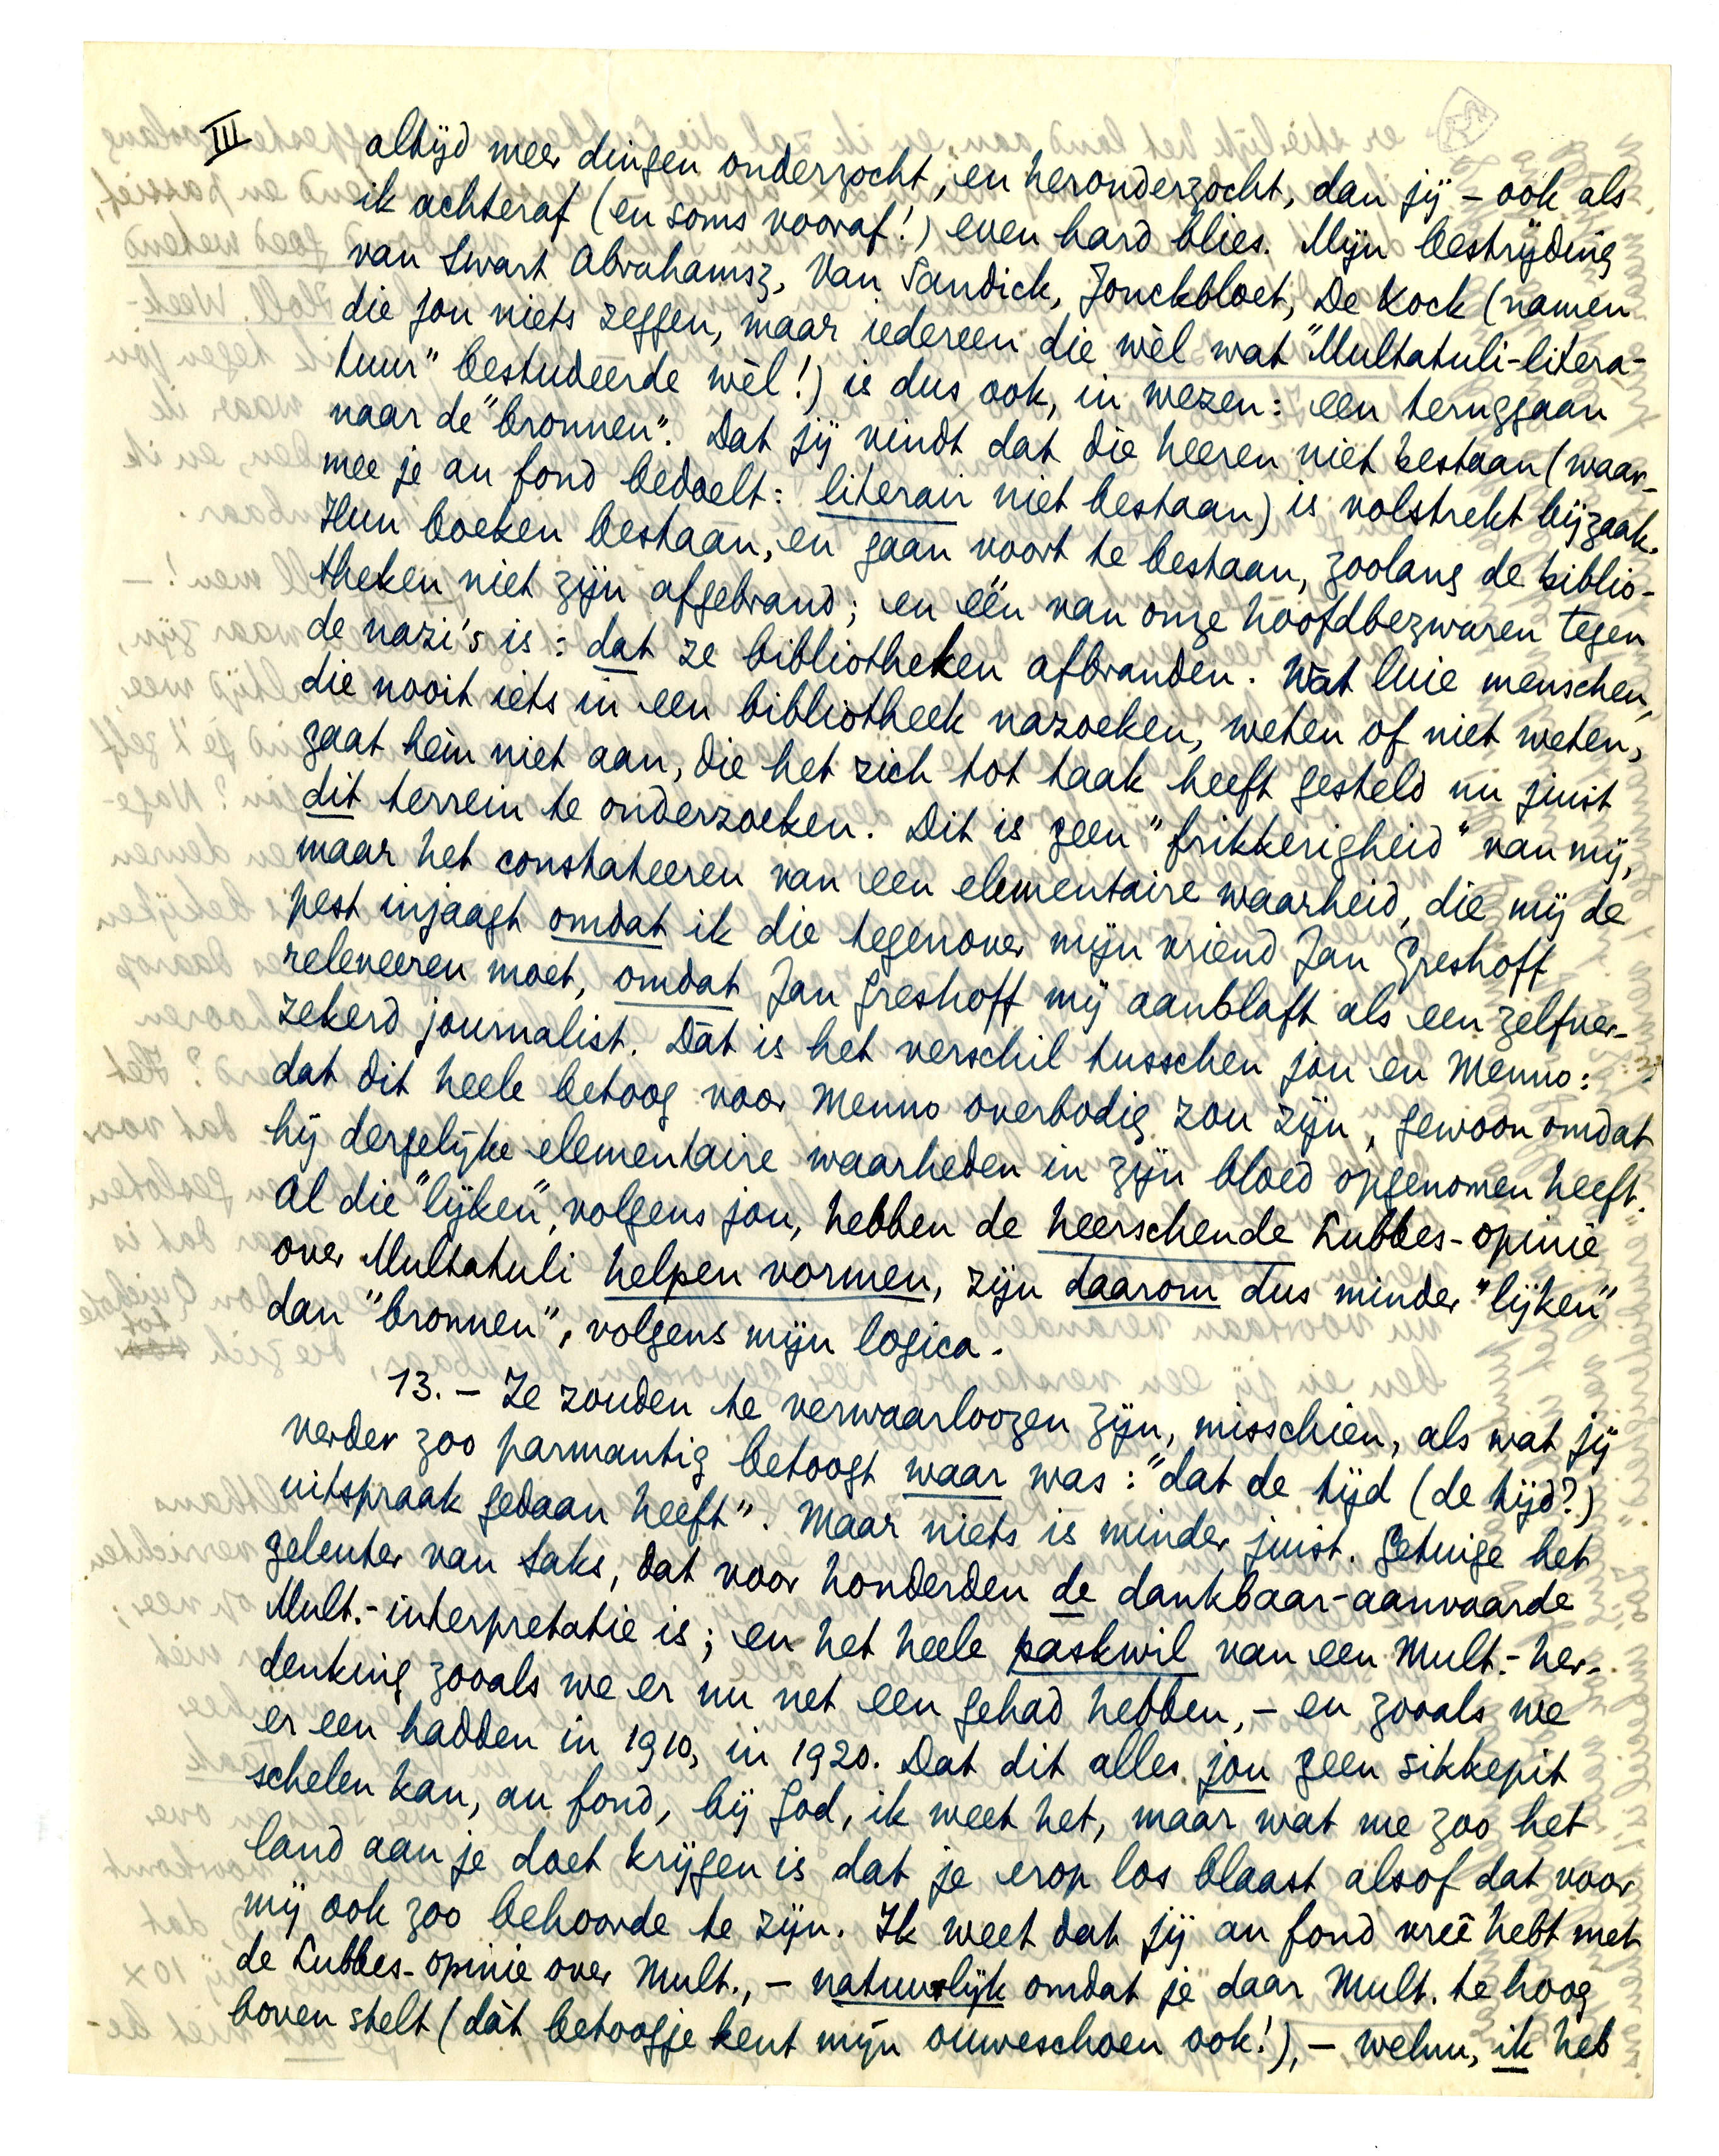 III
altijd meer dingen onderzocht, en heronderzocht, dan jij – ook als
ik achteraf (en soms vooraf!) even hard blies. Mijn bestrijding
van Swart Abrahamsz, Van Sandick, Jonckbloet, De Kock (namen
die jou niets zeggen, maar iedereen die wèl wat "Multatuli-litera-
tuur" bestudeerde wèl!) is dus ook, in wezen: een teruggaan
naar de "bronnen". Dat jij vindt dat die heeren niet bestaan (waar-
mee je au fond bedoelt: literair niet bestaan) is volstrekt bijzaak.
Hun boeken bestaan, en gaan voort te bestaan, zoolang de biblio-
theken niet zijn afgebrand; en één van onze hoofdbezwaren tegen
de nazi's is: dat ze bibliotheken afbranden. Wat luie menschen,
die nooit iets in een bibliotheek nazoeken, weten of niet weten,
gaat hèm niet aan, die het zich tot taak heeft gesteld nu juist
dit terrein te onderzoeken. Dit is geen "frikkerigheid" van mij,
maar het constateeren van een elementaire waarheid, die mij de
pest injaagt omdat ik die tegenover mijn vriend Jan Greshoff
releveeren moet, omdat Jan Greshoff mij aanblaft als een zelfver-
zekerd journalist. Dàt is het verschil tusschen jou en Menno:
dat dit heele betoog voor Menno overbodig zou zijn, gewoon omdat
hij dergelijke elementaire waarheden in zijn bloed opgenomen heeft.
Al die "lijken", volgens jou, hebben de heerschende Lubbes-opinie
over Multatuli helpen vormen, zijn daarom dus minder "lijken"
dan "bronnen", volgens mijn logica.
13. – Ze zouden te verwaarloozen zijn, misschien, als wat jij
verder zoo parmantig betoogt waar was: "dat de tijd (de tijd?)
uitspraak gedaan heeft". Maar niets is minder juist. Getuige het
geleuter van Saks, dat voor honderden de dankbaar-aanvaarde
Mult.-interpretatie is; en het heele paskwil van een Mult.-her-
denking zooals we er nu net een gehad hebben, – en zooals we
er een hadden in 1910, in 1920. Dat dit alles jou geen sikkepit
schelen kan, au fond, bij God, ik weet het, maar wat me zoo het
land aan je doet krijgen is dat je erop los blaast alsof dat voor
mij ook zoo behoorde te zijn. Ik weet dat jij au fond vreê hebt met
de Lubbes-opinie over Mult., – natuurlijk omdat je daar Mult. te hoog
boven stelt (dàt betoogje kent mijn ouweschoen ook!), – welnu, ik heb